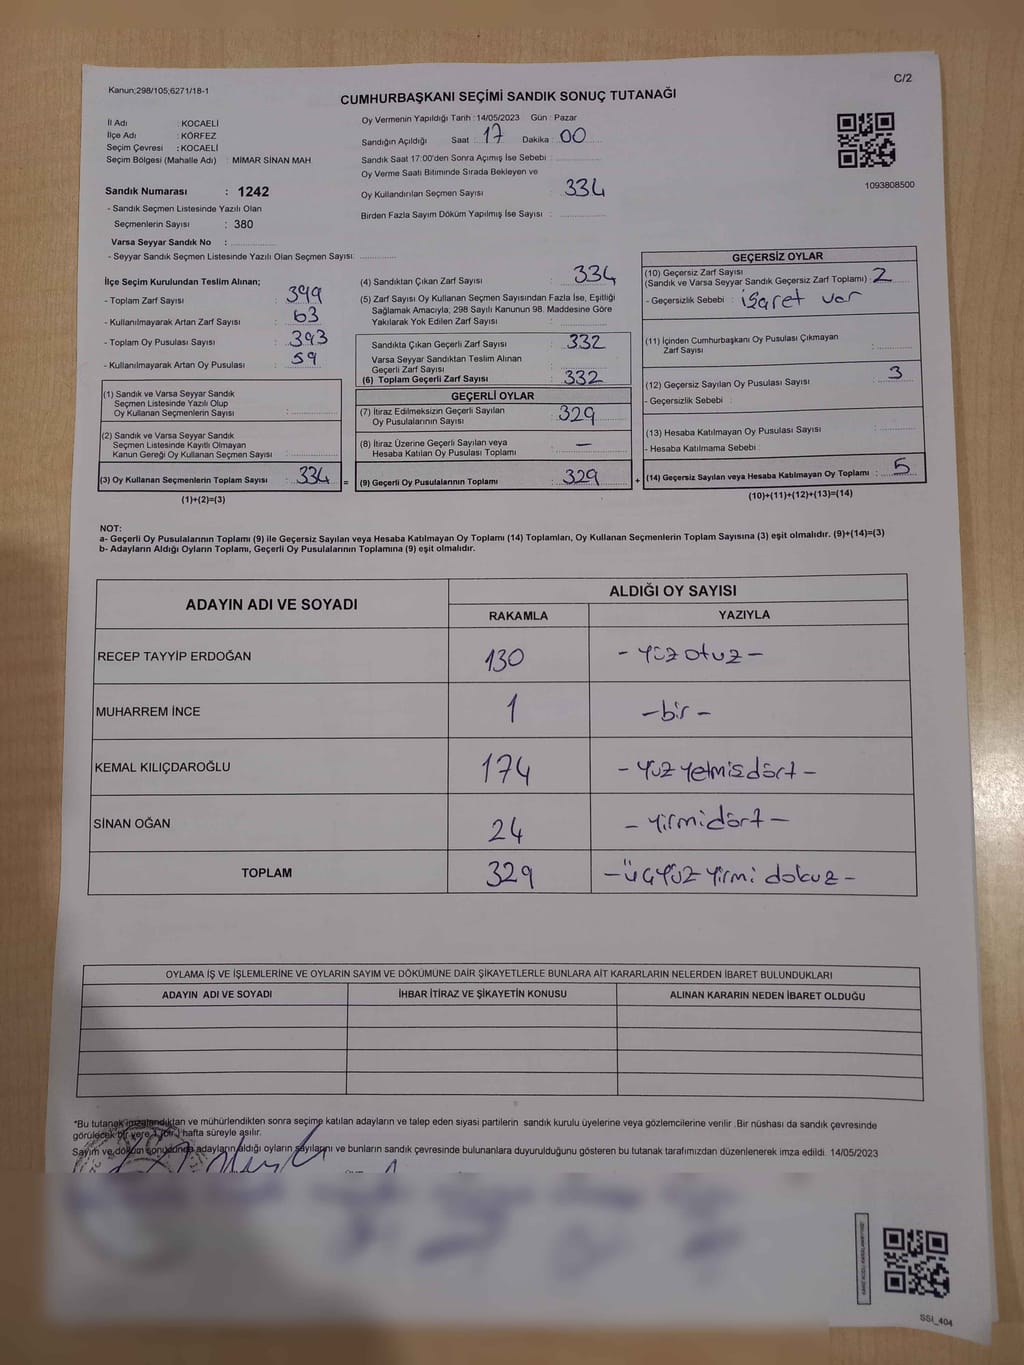 Kanun;298/105;6271/18-1
C/2
CUMHURBAŞKANI SEÇİMİ SANDIK SONUÇ TUTANAĞI
İl Adı : KOCAELİ
İlçe Adı : KÖRFEZ
Seçim Çevresi : KOCAELİ
Seçim Bölgesi (Mahalle Adı) : MİMAR SİNAN MAH
Sandık Numarası : 1242
- Sandık Seçmen Listesinde Yazılı Olan
Seçmenlerin Sayısı : 380
Varsa Seyyar Sandık No :
- Seyyar Sandık Seçmen Listesinde Yazılı Olan Seçmen Sayısı:
Oy Vermenin Yapıldığı Tarih : 14/05/2023 Gün : Pazar
Sandığın Açıldığı Saat : 17 Dakika : 00
Sandık Saat 17:00'den Sonra Açımış İse Sebebi :
Oy Verme Saati Bitiminde Sırada Bekleyen ve
Oy Kullandırılan Seçmen Sayısı : 334
Birden Fazla Sayım Döküm Yapılmış İse Sayısı :
1093808500
İlçe Seçim Kurulundan Teslim Alınan;
- Toplam Zarf Sayısı : 399
- Kullanılmayarak Artan Zarf Sayısı : 63
- Toplam Oy Pusulası Sayısı : 393
- Kullanılmayarak Artan Oy Pusulası : 59
(1) Sandık ve Varsa Seyyar Sandık
Seçmen Listesinde Yazılı Olup
Oy Kullanan Seçmenlerin Sayısı :
(2) Sandık ve Varsa Seyyar Sandık
Seçmen Listesinde Kayıtlı Olmayan
Kanun Gereği Oy Kullanan Seçmen Sayısı :
(3) Oy Kullanan Seçmenlerin Toplam Sayısı : 334 =
(1)+(2)=(3)
(4) Sandıktan Çıkan Zarf Sayısı : 334
(5) Zarf Sayısı Oy Kullanan Seçmen Sayısından Fazla İse, Eşitliği
Sağlamak Amacıyla; 298 Sayılı Kanunun 98. Maddesine Göre
Yakılarak Yok Edilen Zarf Sayısı :
Sandıkta Çıkan Geçerli Zarf Sayısı : 332
Varsa Seyyar Sandıktan Teslim Alınan
Geçerli Zarf Sayısı :
(6) Toplam Geçerli Zarf Sayısı : 332
GEÇERLİ OYLAR
(7) İtiraz Edilmeksizin Geçerli Sayılan
Oy Pusulalarının Sayısı : 329
(8) İtiraz Üzerine Geçerli Sayılan veya
Hesaba Katılan Oy Pusulası Toplamı : —
(9) Geçerli Oy Pusulalarının Toplamı : 329 +
GEÇERSİZ OYLAR
(10) Geçersiz Zarf Sayısı
(Sandık ve Varsa Seyyar Sandık Geçersiz Zarf Toplamı) : 2
- Geçersizlik Sebebi : işaret var
(11) İçinden Cumhurbaşkanı Oy Pusulası Çıkmayan
Zarf Sayısı :
(12) Geçersiz Sayılan Oy Pusulası Sayısı : 3
- Geçersizlik Sebebi :
(13) Hesaba Katılmayan Oy Pusulası Sayısı :
- Hesaba Katılmama Sebebi :
(14) Geçersiz Sayılan veya Hesaba Katılmayan Oy Toplamı : 5
(10)+(11)+(12)+(13)=(14)
NOT:
a- Geçerli Oy Pusulalarının Toplamı (9) ile Geçersiz Sayılan veya Hesaba Katılmayan Oy Toplamı (14) Toplamları, Oy Kullanan Seçmenlerin Toplam Sayısına (3) eşit olmalıdır. (9)+(14)=(3)
b- Adayların Aldığı Oyların Toplamı, Geçerli Oy Pusulalarının Toplamına (9) eşit olmalıdır.
ADAYIN ADI VE SOYADI
ALDIĞI OY SAYISI
RAKAMLA YAZIYLA
RECEP TAYYİP ERDOĞAN 130 - Yüz otuz -
MUHARREM İNCE 1 - bir -
KEMAL KILIÇDAROĞLU 174 - Yüz Yetmiş dört -
SİNAN OĞAN 24 - Yirmi dört -
TOPLAM 329 - üç Yüz Yirmi dokuz -
OYLAMA İŞ VE İŞLEMLERİNE VE OYLARIN SAYIM VE DÖKÜMÜNE DAİR ŞİKAYETLERLE BUNLARA AİT KARARLARIN NELERDEN İBARET BULUNDUKLARI
ADAYIN ADI VE SOYADI İHBAR İTİRAZ VE ŞİKAYETİN KONUSU ALINAN KARARIN NEDEN İBARET OLDUĞU
*Bu tutanak imzalandıktan ve mühürlendikten sonra seçime katılan adayların ve talep eden siyasi partilerin sandık kurulu üyelerine veya gözlemcilerine verilir .Bir nüshası da sandık çevresinde
görülecek bir yere 1 (bir) hafta süreyle asılır.
Sayım ve döküm sonucunda adayların aldığı oyların sayılarını ve bunların sandık çevresinde bulunanlara duyurulduğunu gösteren bu tutanak tarafımızdan düzenlenerek imza edildi. 14/05/2023
SSI_404